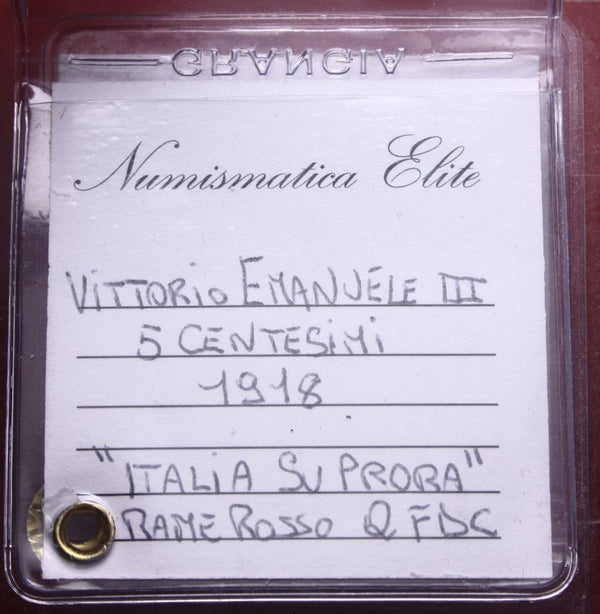 GRANGIA
Numismatica Elite
VITTORIO EMANUELE III
5 CENTESIMI
1918
"ITALIA SU PRORA"
RAME ROSSO Q FDC